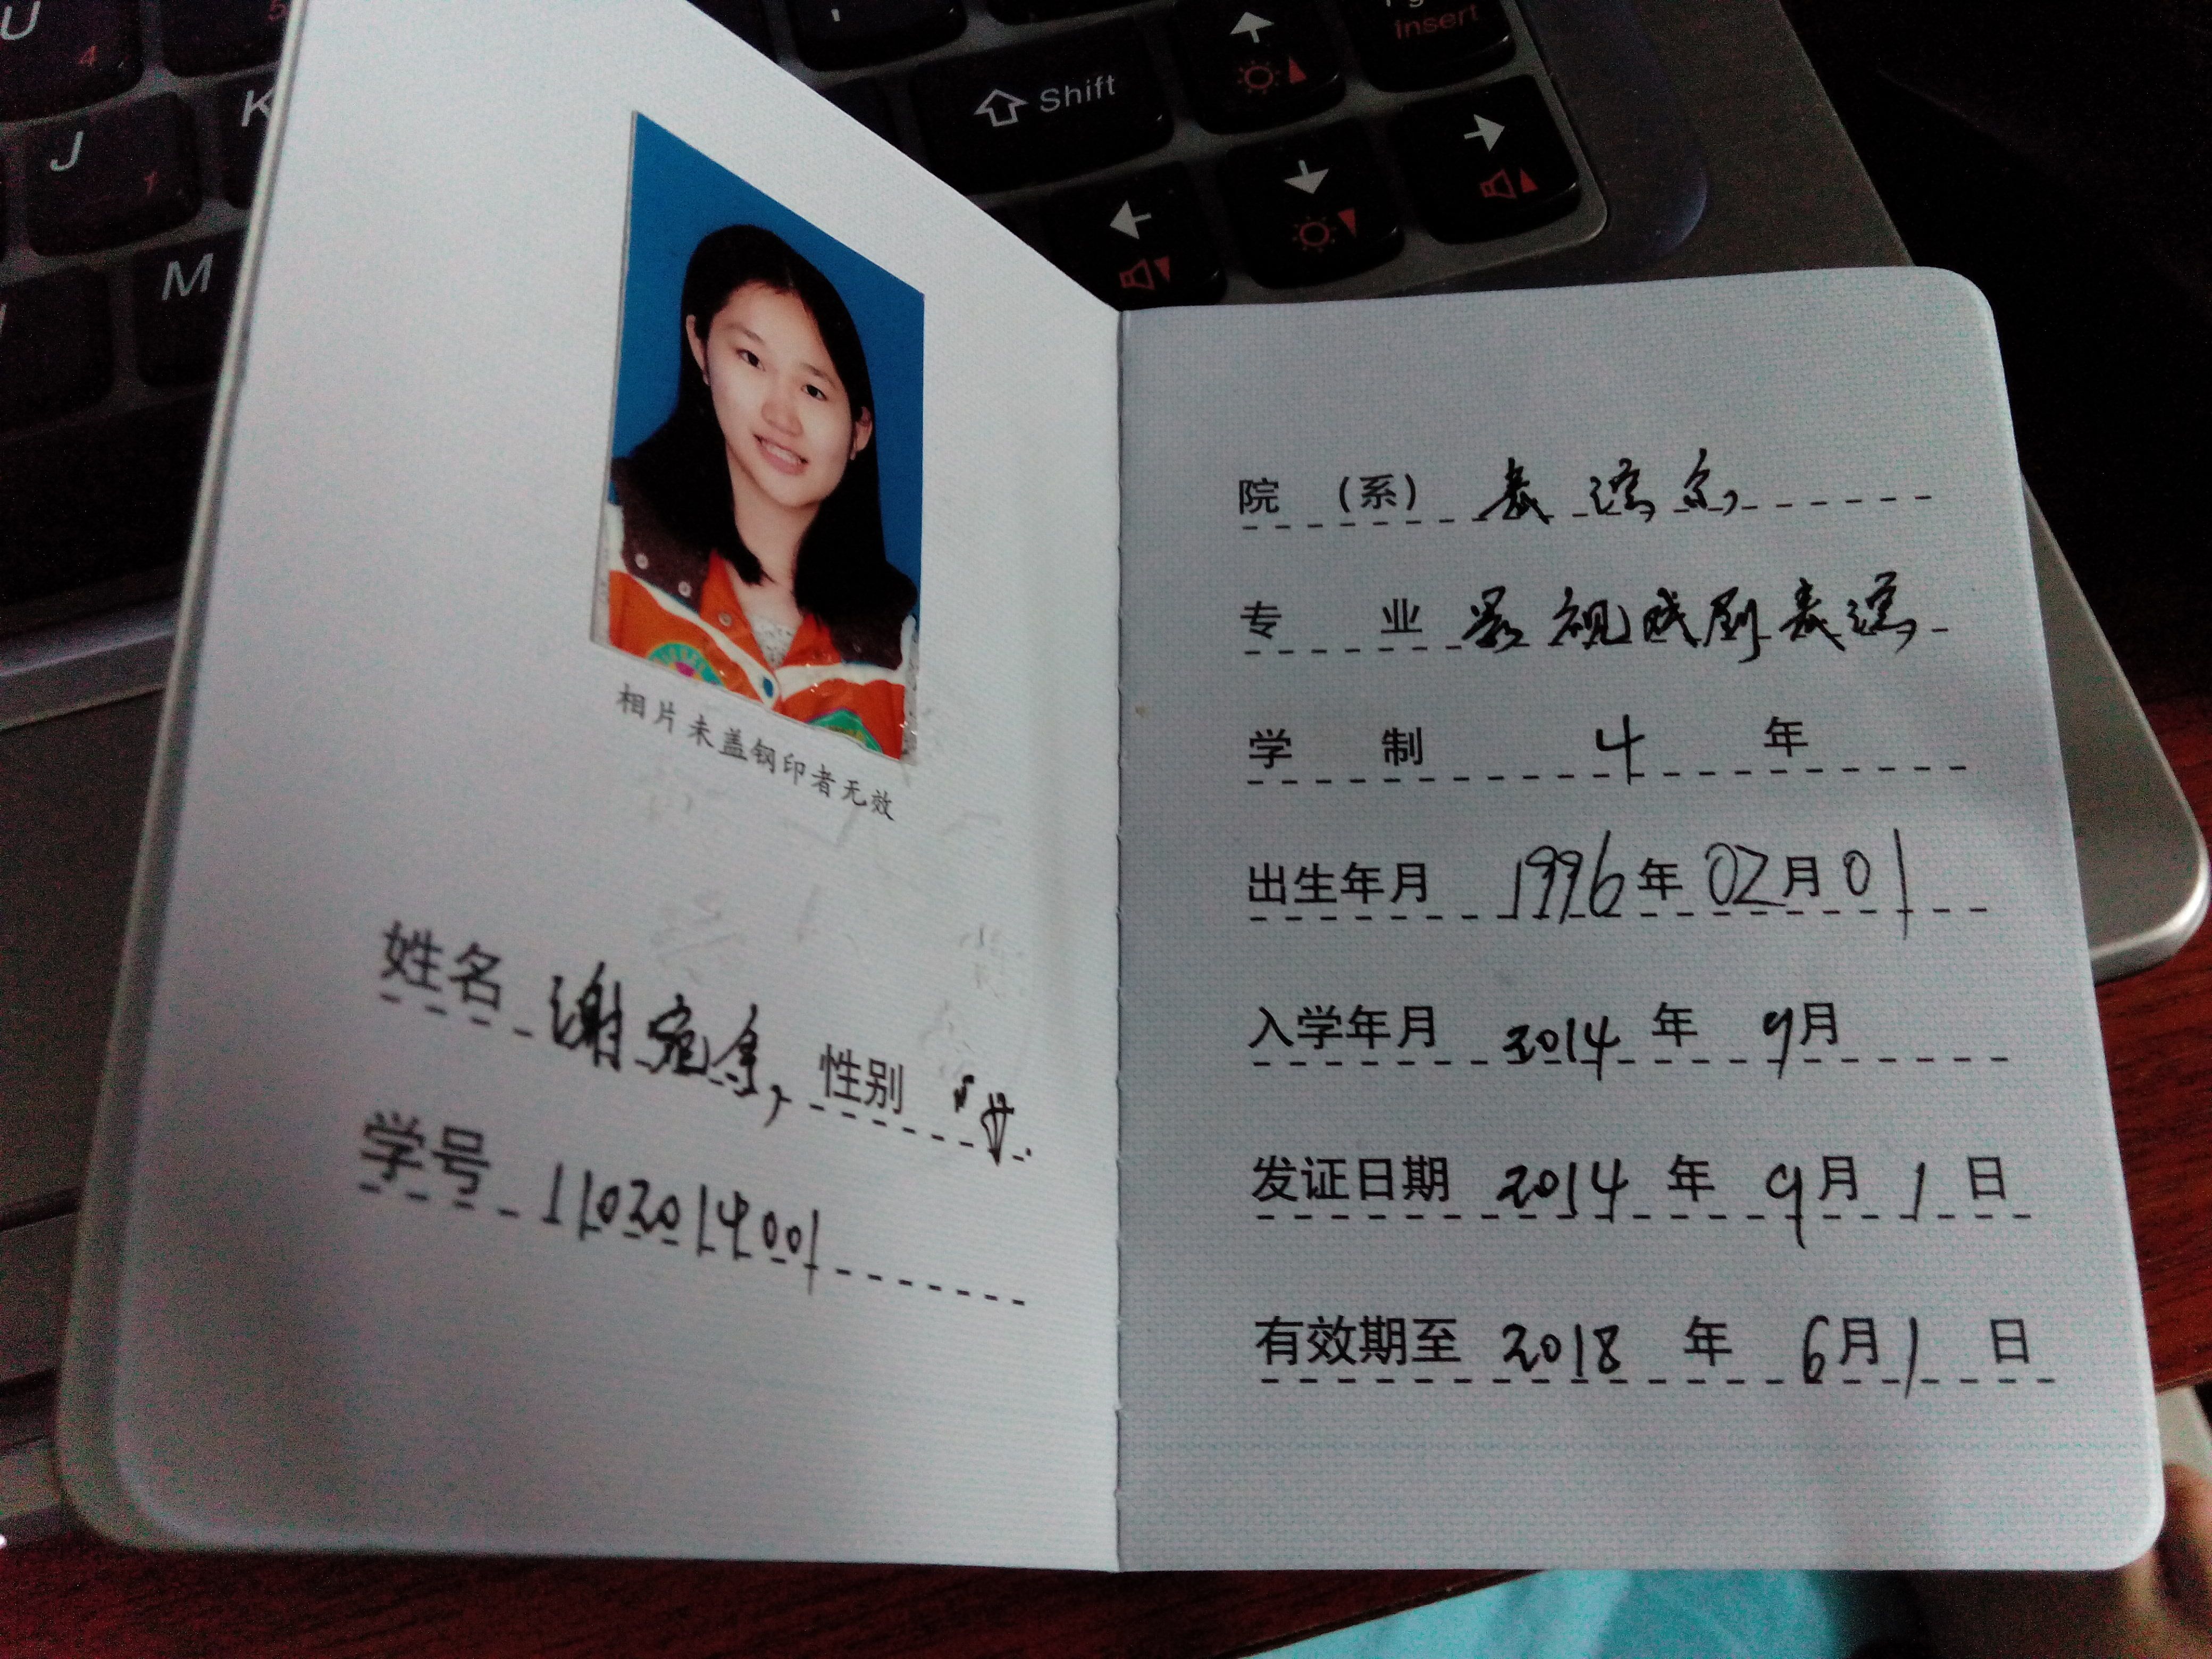 U
4
5
J
1
K
M
Shift
Insert
相片未盖钢印者无效
姓名 谢宛余 性别 女
学号 1102014001
院 (系) 表演系
专 业 影视戏剧表演
学 制 4 年
出生年月 1996年02月01
入学年月 2014 年 9月
发证日期 2014 年 9月 1 日
有效期至 2018 年 6月1 日